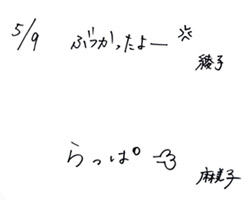 5/9 ぶつかったよー 💢
綾子
らっぱ 💨
麻皇子